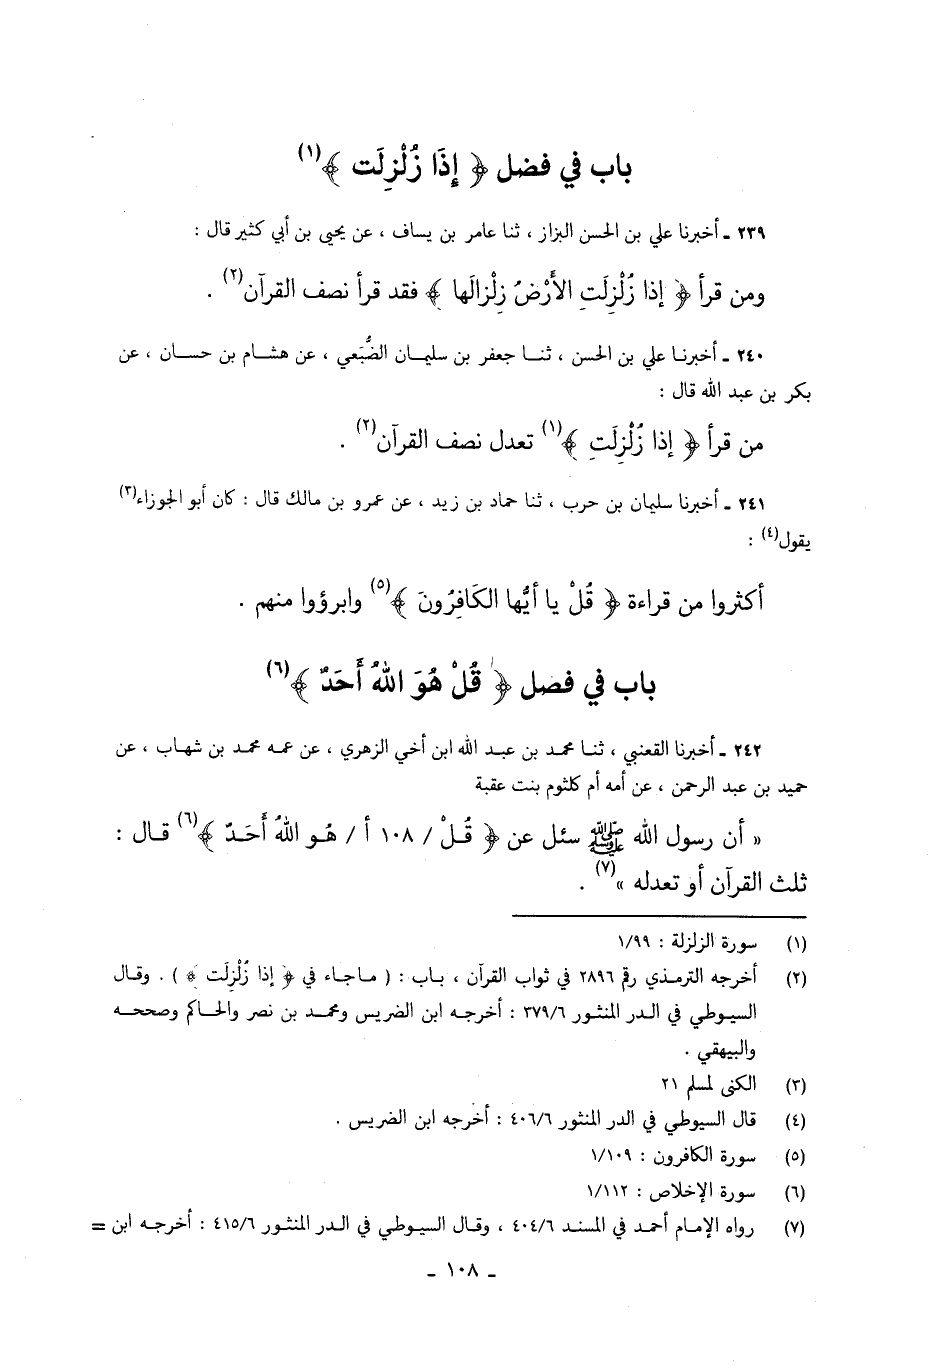 باب في فضل ﴿ إِذَا زُلْزِلَت ﴾(١)
٢٣٩ ـ أخبرنا علي بن الحسن البزاز ، ثنا عامر بن يساف ، عن يحيى بن أبي كثير قال :
ومن قرأ ﴿ إذا زُلْزِلَتِ الأَرْضُ زِلْزالَها ﴾ فقد قرأ نصف القرآن(٢) .
٢٤٠ ـ أخبرنا علي بن الحسن ، ثنا جعفر بن سليمان الضُّبَعي ، عن هشام بن حسان ، عن
بكر بن عبد الله قال :
من قرأ ﴿ إذا زُلْزِلَتِ ﴾(١) تعدل نصف القرآن(٢) .
٢٤١ ـ أخبرنا سليمان بن حرب ، ثنا حماد بن زيد ، عن عمرو بن مالك قال : كان أبو الجوزاء(٣)
يقول(٤) :
أكثروا من قراءة ﴿ قُلْ يا أيُّها الكَافِرُونَ ﴾(٥) وابرؤوا منهم .
باب في فصل ﴿ قُلْ هُوَ اللهُ أَحَدٌ ﴾(٦)
٢٤٢ ـ أخبرنا القعنبي ، ثنا محمد بن عبد الله ابن أخي الزهري ، عن عمه محمد بن شهاب ، عن
حميد بن عبد الرحمن ، عن أمه أم كلثوم بنت عقبة
« أن رسول الله ﷺ سئل عن ﴿ قُلْ / ١٠٨ أ / هُو اللهُ أَحَدٌ ﴾(٦) قال :
ثلث القرآن أو تعدله »(٧) .
(١) سورة الزلزلة : ١/٩٩
(٢) أخرجه الترمذي رقم ٢٨٩٦ في ثواب القرآن ، باب : ( ماجاء في ﴿ إذا زُلْزِلَت ﴾ ) . وقال
السيوطي في الدر المنثور ٣٧٩/٦ : أخرجه ابن الضريس ومحمد بن نصر والحاكم وصححه
والبيهقي .
(٣) الكنى لمسلم ٢١
(٤) قال السيوطي في الدر المنثور ٤٠٦/٦ : أخرجه ابن الضريس .
(٥) سورة الكافرون : ١/١٠٩
(٦) سورة الإخلاص : ١/١١٢
(٧) رواه الإمام أحمد في المسند ٤٠٤/٦ ، وقال السيوطي في الدر المنثور ٤١٥/٦ : أخرجه ابن =
ـ ١٠٨ ـ